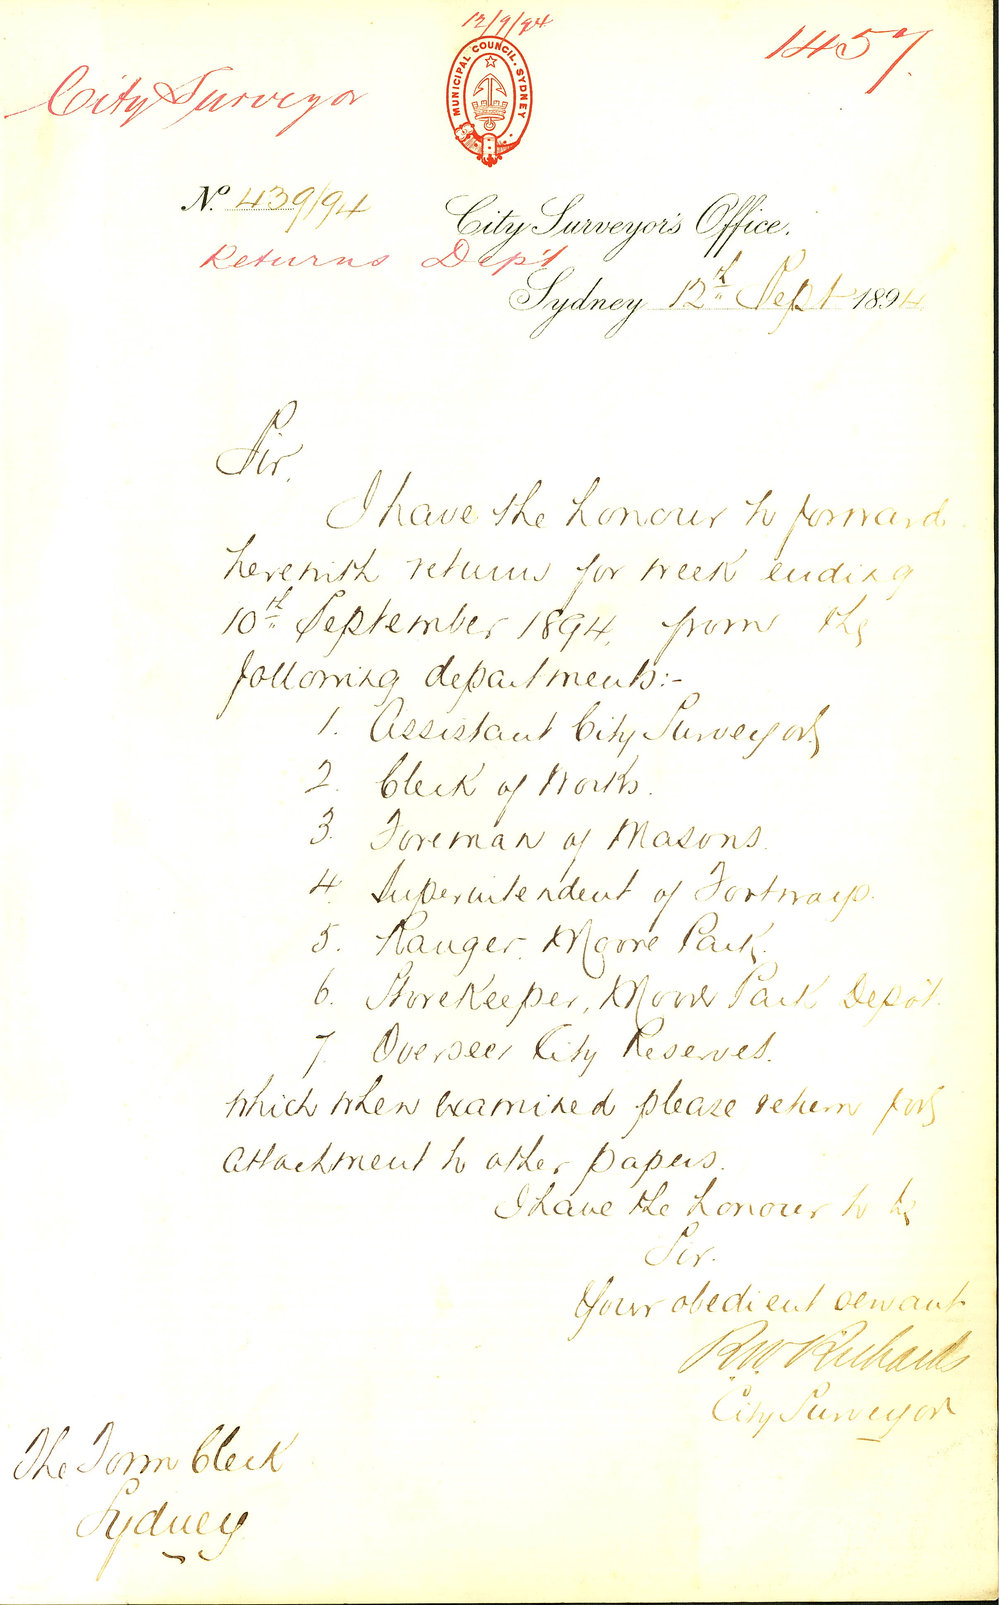 12/9/94
1457.
City Surveyor
MUNICIPAL COUNCIL. SYDNEY
No. 439/94
City Surveyor's Office.
Returns Dep't
Sydney 12th Sept 1894
Sir.
I have the honour to forward
herewith returns for week ending
10th September 1894, from the
following departments:-
1. Assistant City Surveyor.
2. Clerk of Works.
3. Foreman of Masons.
4. Superintendent of Footways.
5. Ranger, Moore Park.
6. Storekeeper, Moore Park Depôt.
7. Overseer City Reserves.
which when examined please return for
attachment to other papers.
I have the honour to be
Sir.
Your obedient servant
R.W. Richards
City Surveyor
The Town Clerk
Sydney